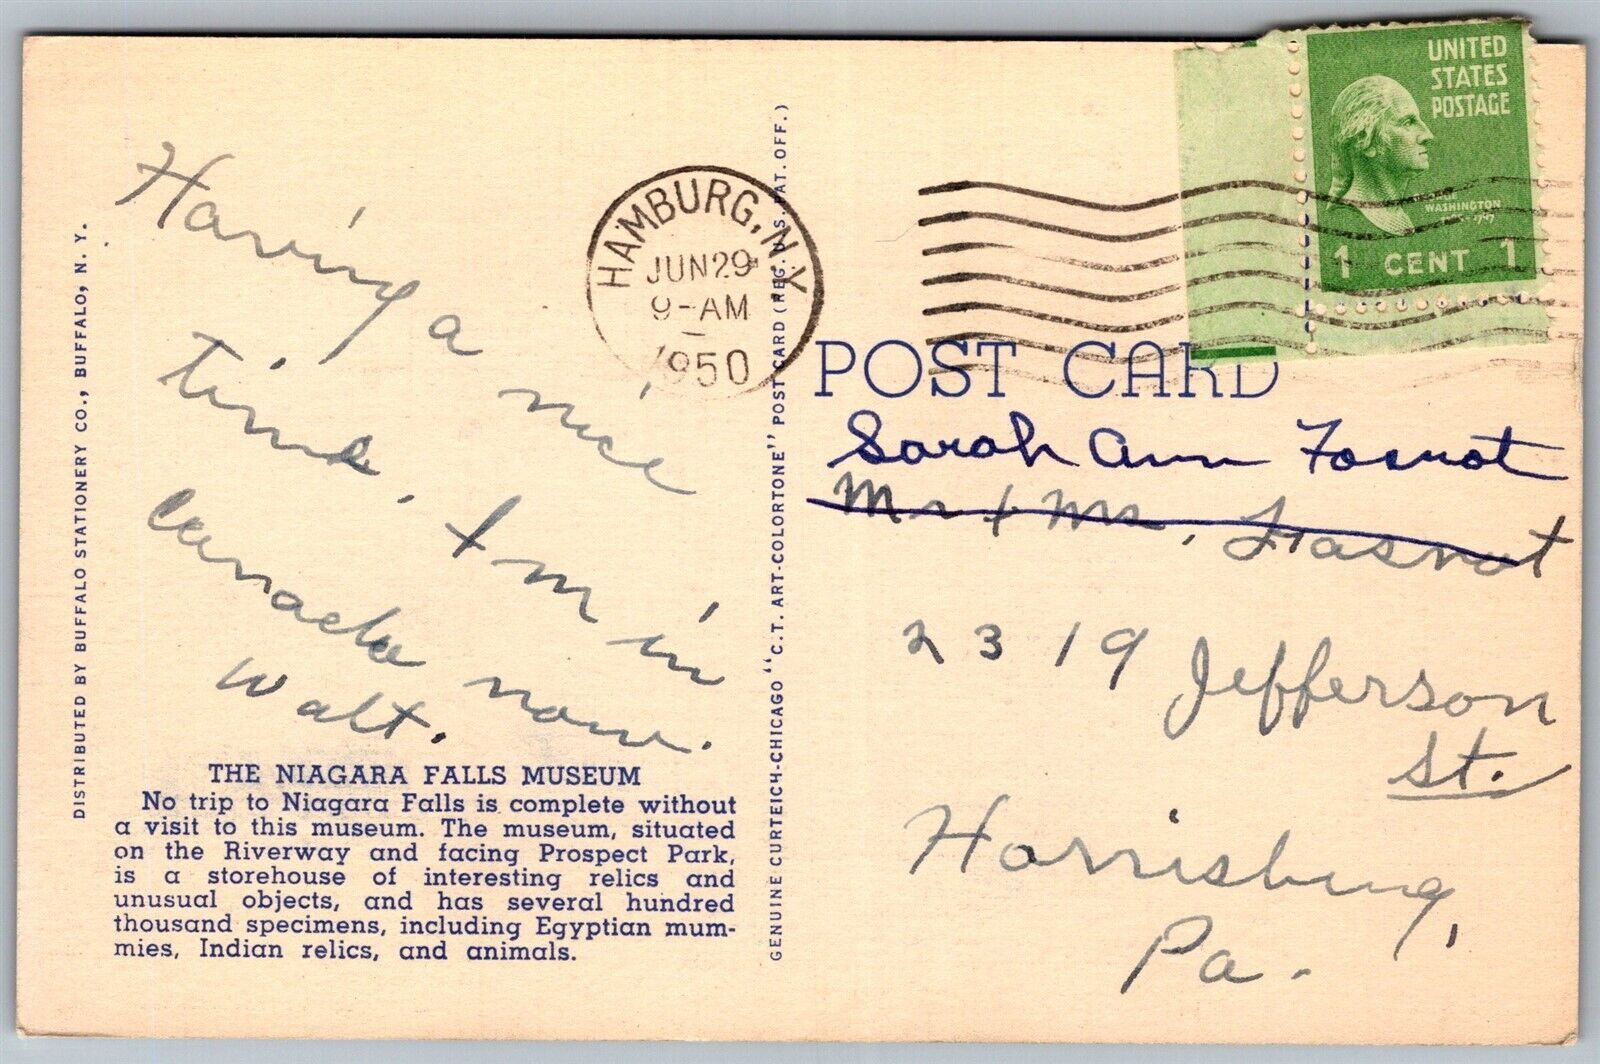 UNITED
STATES
POSTAGE
WASHINGTON
1 CENT 1
HAMBURG, N.Y.
JUN 29
9-AM
1950
POST CARD
Having a nice
time. I'm in
Canada now.
Walt.
Sarah Ann Fosnot
Mr & Mrs. Fasnot
2319 Jefferson
St.
Harrisburg,
Pa.
THE NIAGARA FALLS MUSEUM
No trip to Niagara Falls is complete without
a visit to this museum. The museum, situated
on the Riverway and facing Prospect Park,
is a storehouse of interesting relics and
unusual objects, and has several hundred
thousand specimens, including Egyptian mum-
mies, Indian relics, and animals.
DISTRIBUTED BY BUFFALO STATIONERY CO., BUFFALO, N. Y.
GENUINE CURTEICH-CHICAGO "C.T. ART-COLORTONE" POST CARD (REG. U.S. PAT. OFF.)